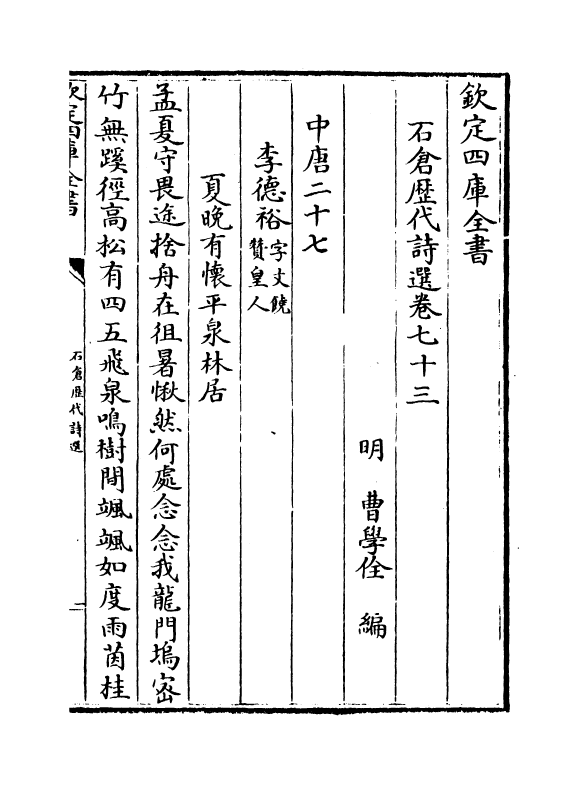 欽定四庫全書
石倉歴代詩選卷七十三
明　曹學佺　編
中唐二十七
李德裕字文饒贊皇人
夏晚有懷平泉林居
孟夏守畏途捨舟在徂暑愀然何處念念我龍門塢密
竹無蹊徑高松有四五飛泉鳴樹間颯颯如度雨菌桂
欽定四庫全書
石倉歴代詩選
一